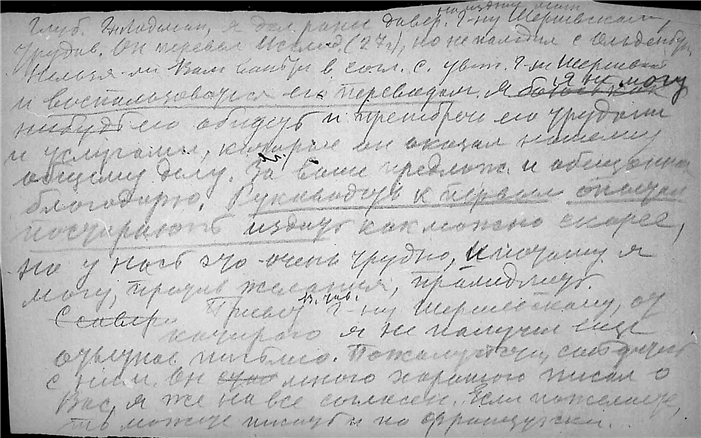 на издание моих
Глуб. Г-н Гладман, я дал ранее довер. г-ну Шершевскому,
трудов. Он перевел Исслед. (27 г), но не наладил с Ольденбург
Нельзя ли Вам войти в согл. с уваж. г-м Шершевск
и воспользоваться его переводом. Я я не могу
нибудь его обидеть и пренебречь его трудами
и услугами, которые он оказал нашему
общему делу. За Ваши предлож. и обещания
благодарю. Руководясь к первым опытам
постараюсь издать как можно скорее,
но у нас это очень трудно, и потому я
могу, против желания, промедлить.
Привет г-ну Шершевскому, от
которого я не получил еще
ответное письмо. Пожалуйста,
с ним. Он много хорошего писал о
Вас, я же на все согласен. Если пожелаете,
то можете писать и по французски.